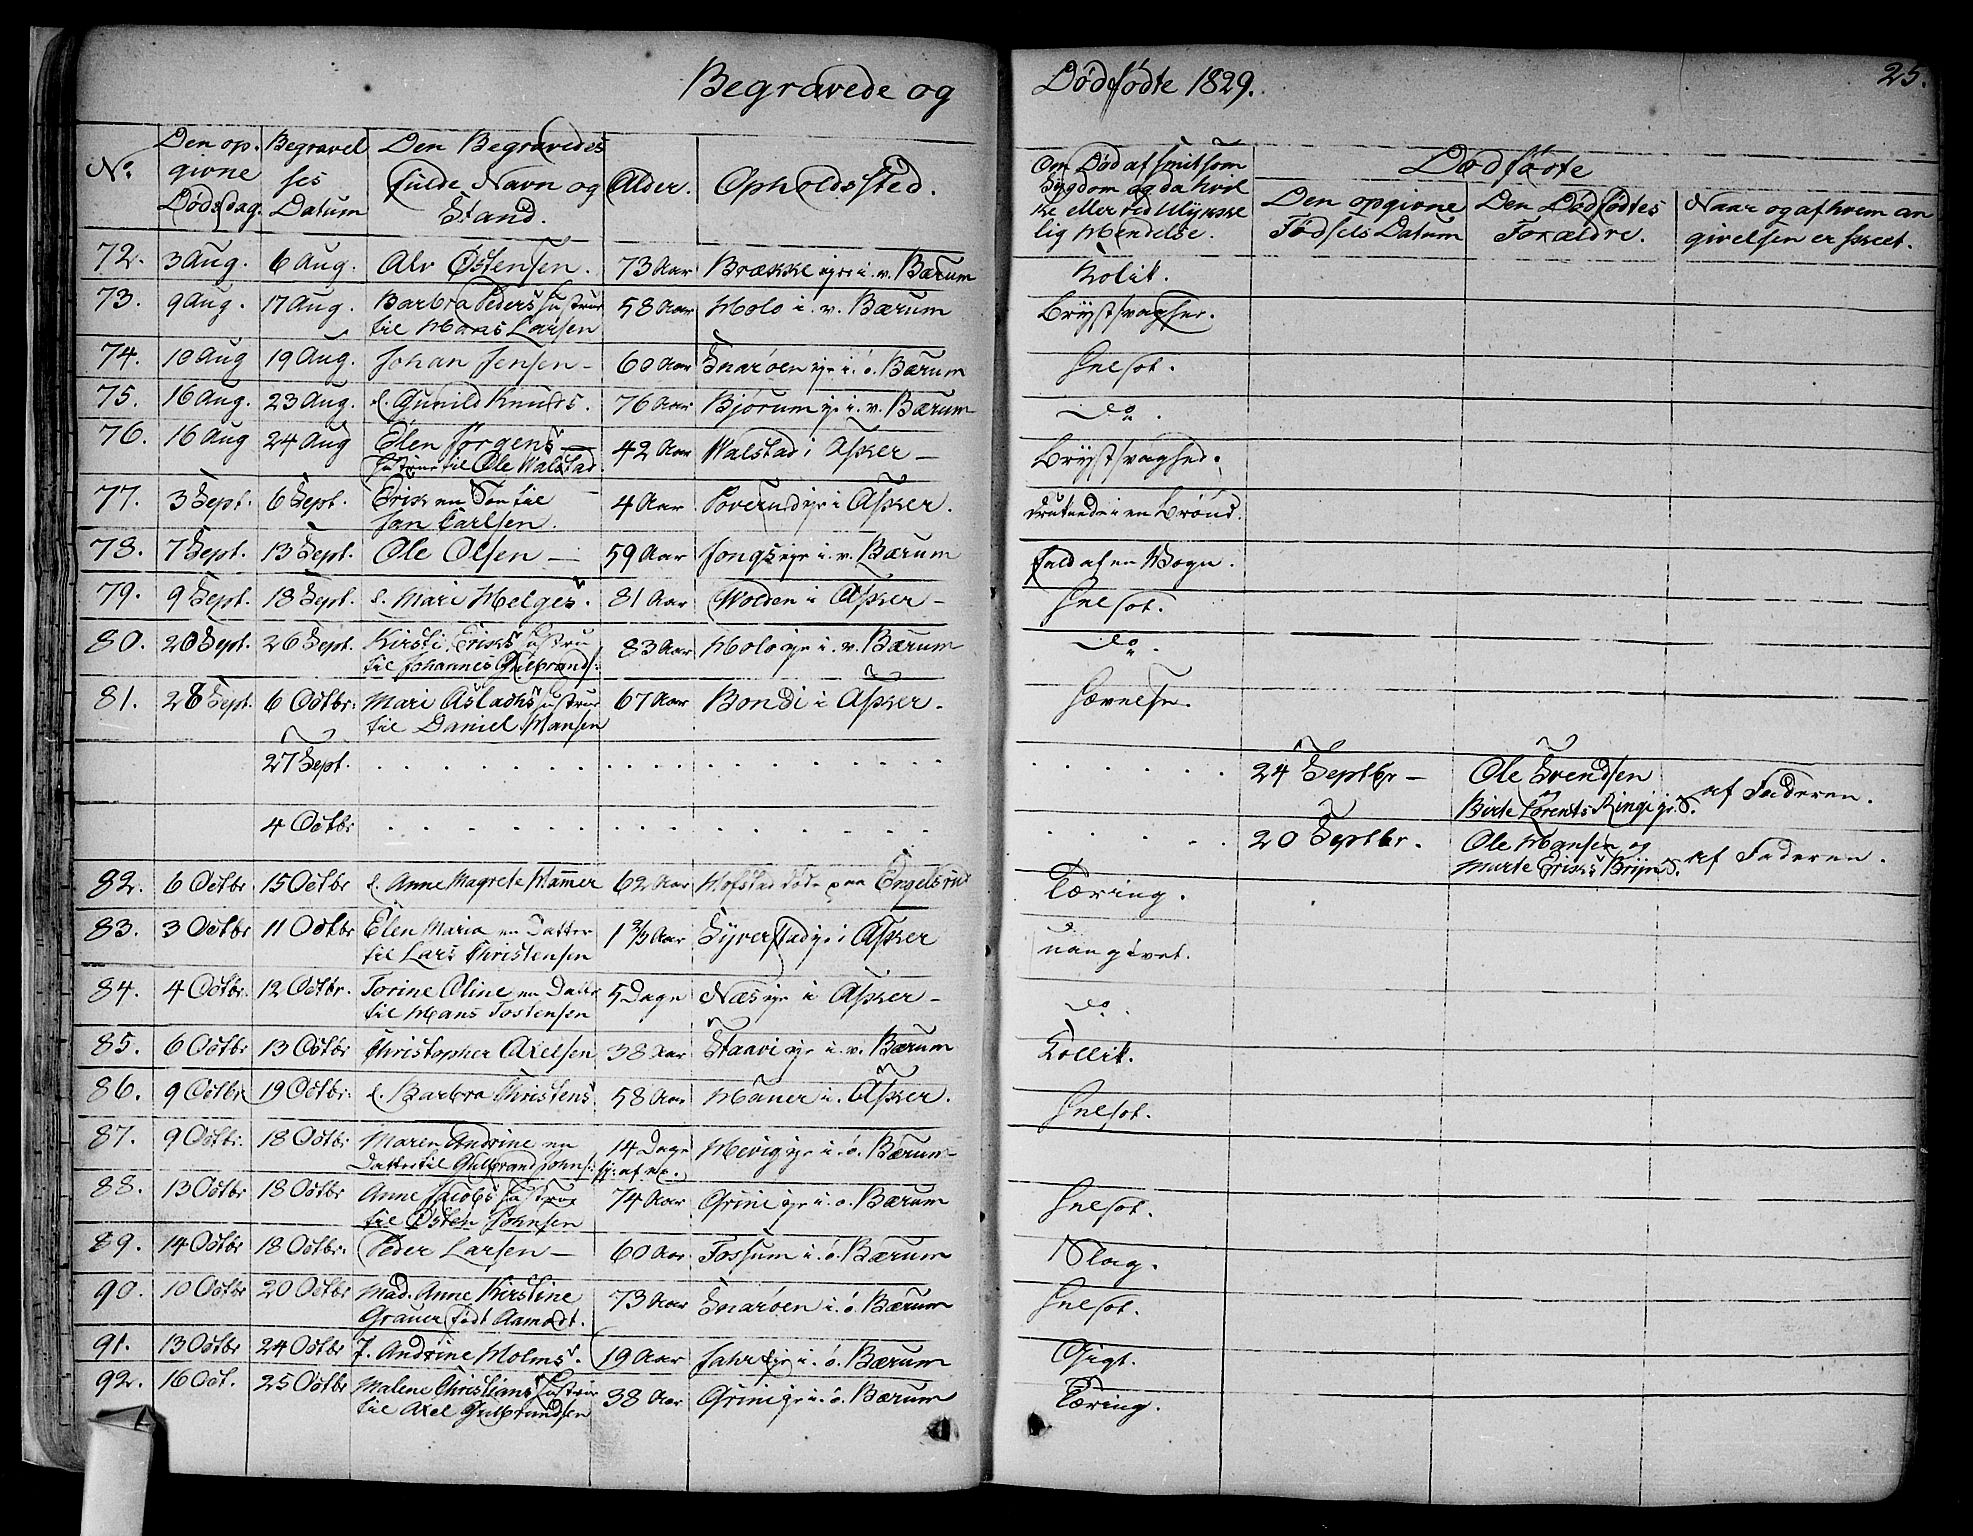 Begravede og Dødfødte 1829. 25.
No. Den op- Begravel Den Begravedes Alder. Opholdssted. Om Død af smitsom Dødfødte
givne ses fulde Navn og Sygdom og da hvil
Dødsdag. Datum Stand. ke eller ved Ulykke Den opgivne Den Dødfødtes Naar og af hvem an
lig Hendelse. Fødsels Datum Forældre. givelsen er skeet.
72. 3 Aug. 6 Aug. Alv Østensen. 73 Aar Brække eje i. v. Bærum Kolik.
73. 9 Aug. 17 Aug. Barbra Peders Hustrue 58 Aar Holo i. v. Bærum Brystsvaghed.
til Hans Larsen
74. 10 Aug 19 Aug. Johan Jensen – 60 Aar Snarøen eje i. ø. Bærum Inesot.
75. 16 Aug. 23 Aug. e. Gunild Knuds. 76 Aar Bjorum eje i. v. Bærum do.
76. 16 Aug 24 Aug Elen Jørgens – 42 Aar Walstad i Asker – Brystsvaghed.
Hustrue til Ole Walstad.
77. 3 Sept. 6 Sept. Erik en Søn til 4 Aar eje i Asker. druknede i en Brønd.
Jan Carlsen.
78. 7 Sept. 13 Sept. Ole Olsen – 59 Aar Jongs eje i. v. Bærum fald af en Vogn.
79. 9 Sept. 18 Sept. e. Mari Helges. 81 Aar Wolden i Asker – Inesot.
80. 20 Sept. 26 Sept. Kirsti Eriks Hustru 83 Aar Holo eje i. v. Bærum do.
til Johannes Gulbrands:
81. 28 Sept. 6 Octbr: Mari Aslachs Hustrue 67 Aar Bondi i Asker. Hævelse.
til Daniel Hansen
27 Sept. . . . . . 24 Septbr – Ole Svendsen af Faderen.
Birte Lorents Ringi
4 Octbr . . . . . 20 Septbr. Ole Hansen og af Faderen.
Marte Eriks
82. 6 Octbr 15 Octbr e. Anne Magrete Hamer 62 Aar Hofstad døde paa Engelsrud Tæring.
83. 3 Octbr 11 Octbr Elen Maria en Datter 1 2/3 Aar Syverstad eje i Asker uangivet.
til Lars Christensen
84. 4 Octbr. 12 Octbr. Torine Oline en Datter 5 Dage Næs eje i Asker – do.
til Hans Tostensen
85. 6 Octbr 13 Octbr Christopher Axelsen 38 Aar Staavi eje i. v. Bærum Kollik.
86. 9 Octbr 19 Octbr. e. Barbra Christens 58 Aar Haner i. Asker. Inesot.
87. 9 Octbr. 18 Octbr Maren Andrine en 14 Dage eje i. ø. Bærum
Datter til Gulbrand Johns:
88. 13 Octbr 18 Octbr Anne Jacobs Hustrue 74 Aar Grini eje i. ø. Bærum Inesot.
til Østen Johnsen
89. 14 Octbr 18 Octbr. Peder Larsen – 60 Aar Fossum i. ø. Bærum Slag.
90. 10 Octbr 20 Octbr Mad. Anne Kirstine 73 Aar Snarøen i. ø. Bærum Inesot.
Grauer født Aamodt.
91. 13 Octbr 24 Octbr J. Andrine Holms. 19 Aar eje i. ø. Bærum Gigt.
92. 16 Oct. 25 Octbr Malene Christians Hustrue 38 Aar Grini eje i. ø. Bærum Tæring.
til Axel Gulbrandsen